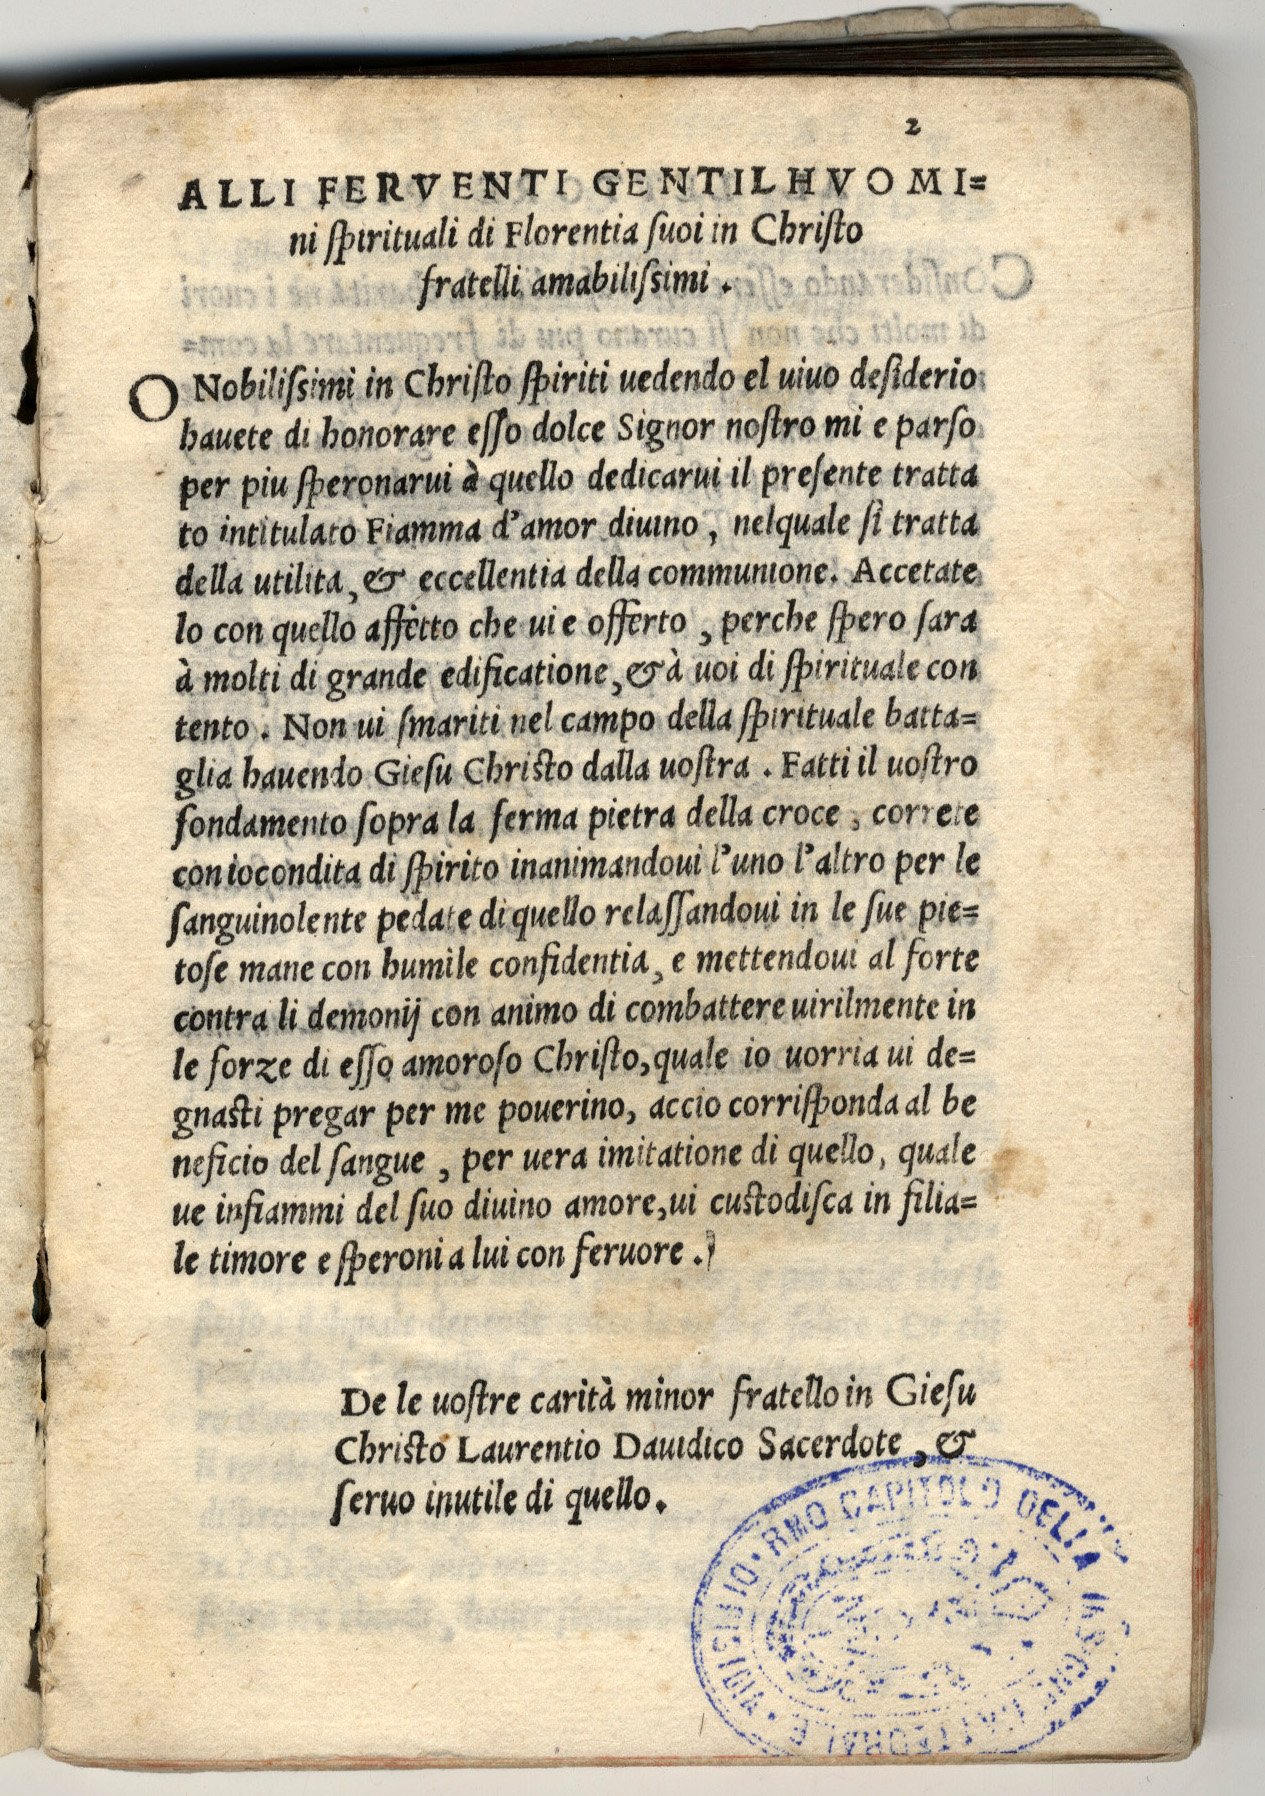 2
ALLI FERVENTI GENTILHVOMI=
ni ſpirituali di Florentia ſuoi in Chriſto
fratelli amabiliſsimi.
O Nobiliſsimi in Chriſto ſpiriti uedendo el uiuo deſiderio
hauete di honorare eſſo dolce Signor noſtro mi e parſo
per piu ſperonarui à quello dedicarui il preſente tratta
to intitulato Fiamma d'amor diuino, nelquale ſi tratta
della utilita, & eccellentia della communione. Accetate
lo con quello affetto che ui e offerto, perche ſpero ſara
à molti di grande edificatione, & à uoi di ſpirituale con
tento. Non ui ſmariti nel campo della ſpirituale batta=
glia hauendo Gieſu Chriſto dalla uoſtra. Fatti il uoſtro
fondamento ſopra la ferma pietra della croce, correte
con iocondita di ſpirito inanimandoui l'uno l'altro per le
ſanguinolente pedate di quello relaſſandoui in le ſue pie=
toſe mane con humile confidentia, e mettendoui al forte
contra li demonij con animo di combattere uirilmente in
le forze di eſſo amoroſo Chriſto, quale io uorria ui de=
gnaſti pregar per me pouerino, accio corriſponda al be
neficio del ſangue, per uera imitatione di quello, quale
ue infiammi del ſuo diuino amore, ui cuſtodiſca in filia=
le timore e ſperoni a lui con feruore.
De le uoſtre carità minor fratello in Gieſu
Chriſto Laurentio Dauidico Sacerdote, &
ſeruo inutile di quello.
RMO CAPITOLO DELLA